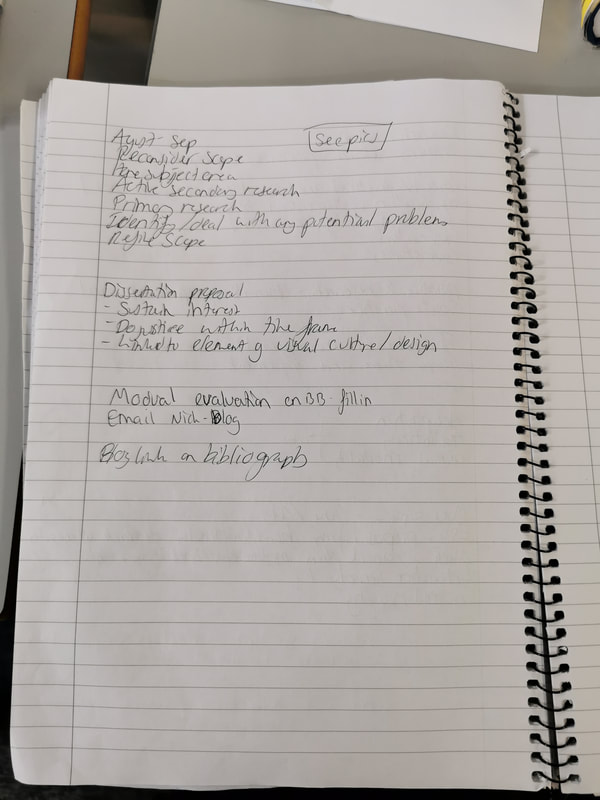 August - Sep
See pics
Reconsider scope
subject area
Active secondary research
Primary research
Identify / deal with any potential problems
Refine Scope
Dissertation proposal
- Sustain interest
- within time frame
- Linked to element of visual culture / design
Modual evaluation on BB - fill in
Email Nick - Blog
Blog link on bibliography